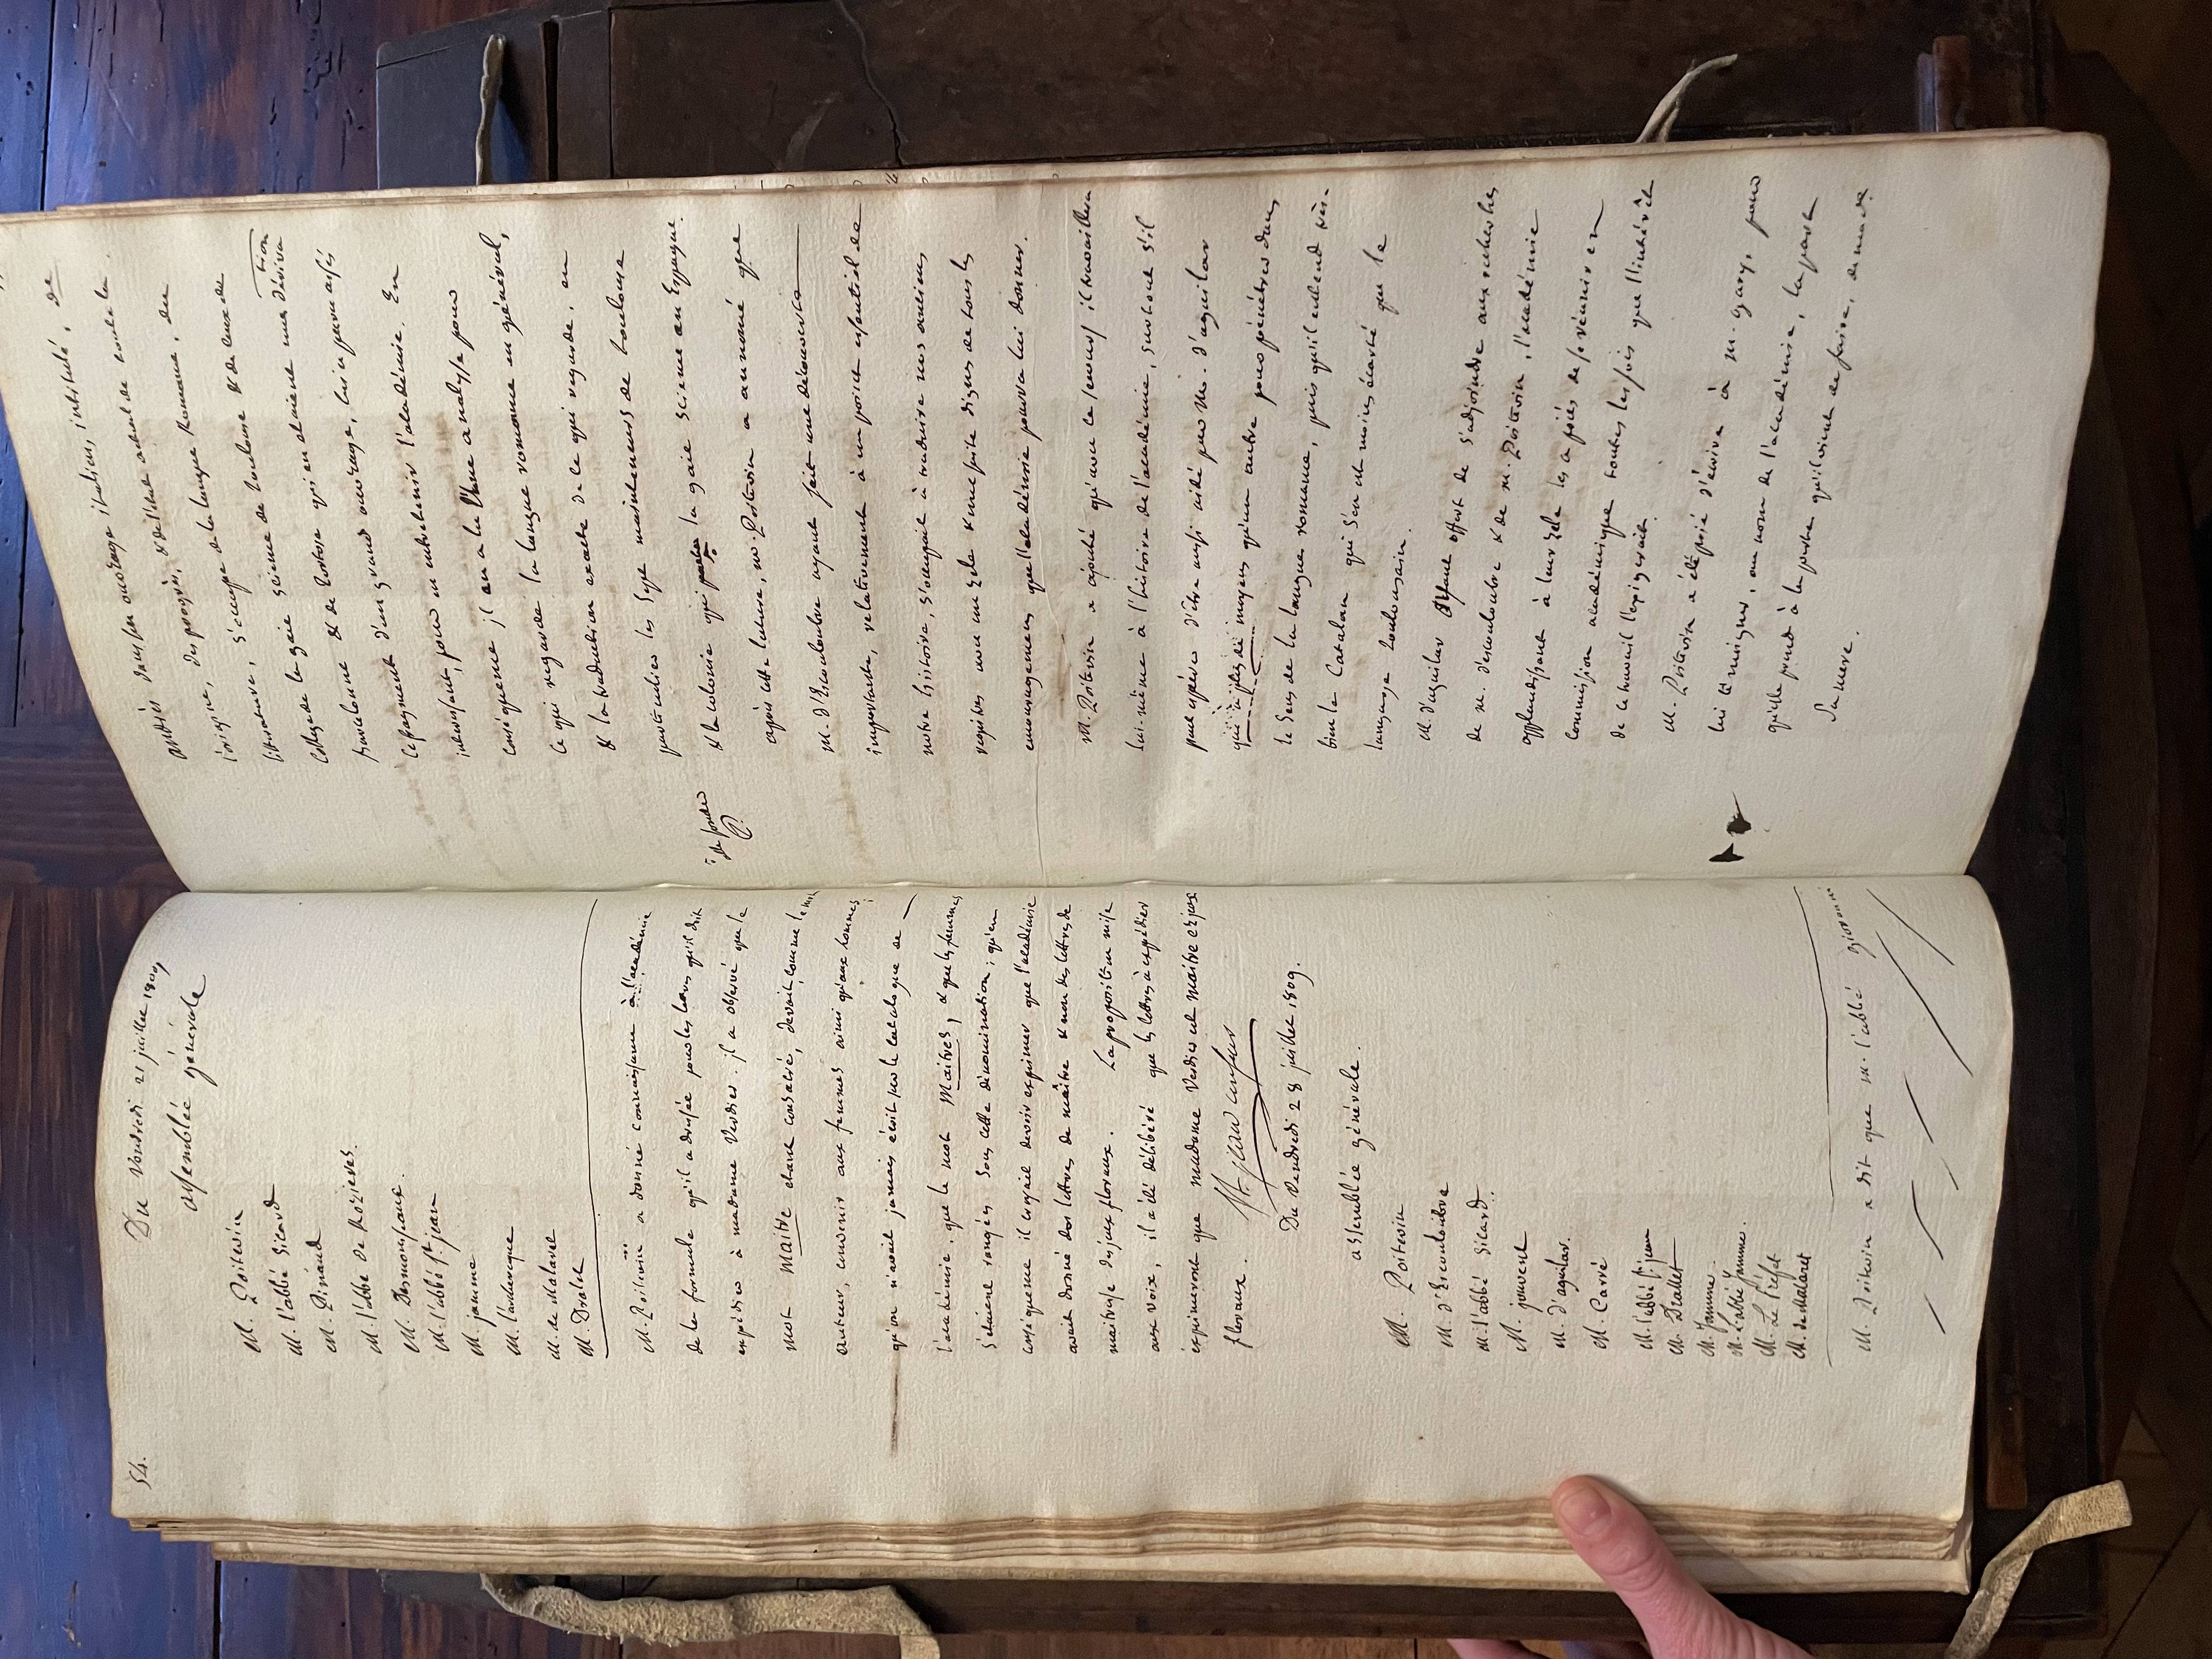 54.
Du Vendredi 21 juillet 1809,
assemblée générale
M. Poitevin
M. l'abbé Sicard
M. Pinaud
M. l'abbé de Rozieres.
M. Desmousseaux.
M. l'abbé St. jean
M. jamme
M. Lavedan
M. de Malaret
M. Dralet
M. Poitevin a donné connaissance à l'académie
de la formule qu'il a dressée pour les lettres qu'il doit
expédier à madame Verdier. il a observé que le
mot Maitre étant consacré, devait, comme le mot
auteur, convenir aux femmes ainsi qu'aux hommes;
qu'on n'avait jamais écrit sur le catalogue de
l'académie, que le mot Maitres, & que les femmes
s'étaient rangées sous cette dénomination; qu'en
conséquence il croyait devoir exprimer que l'académie
avait donné des lettres de maître & non des lettres de
maitrise des jeux floraux. La proposition mise
aux voix, il a été délibéré que les lettres à expédier
exprimeront que madame Verdier est maitre ez jeux
floraux.
Du Vendredi 28 juillet 1809.
assemblée générale.
M. Poitevin
M. d'Escouloubre
M. l'abbé Sicard.
M. jouvent
M. d'aguilar.
M. Carré
M. l'abbé St. jean
M. Dralet
M. Jamme.
M. l'abbé Jamme.
M. Le Préfet
M. de Malaret
M. Poitevin a dit que M. l'abbé
andrès dans son ouvrage italien, intitulé, de
l'origine, des progrès, & de l'état actuel de toute la
littérature, s'occupe de la langue Romane, du
College de la gaie science de Toulouse & de ceux de
barcelonne & de tortose qui en étaient une dérivation
Le fragment d'un grand ouvrage, lui a paru assés
intéressant, pour en entretenir l'académie. En
conséquence il en a lu l'analyse pour
ce qui regarde la langue romane en général,
& la traduction exacte de ce qui regarde, en
particulier les sept mainteneurs de toulouse
& la colonie qui la gaie science en Espagne.
de fonder
après cette lecture, M. Poitevin a annoncé que
M. d'Escouloubre ayant fait une découverte
importante, relativement à un point essentiel de
notre histoire, s'occupait à traduire nos anciens
registres avec un zele & une suite dignes de tous les
encouragemens que l'académie pourra lui donner.
M. Poitevin a ajouté qu'avec ce secours il travaillera
lui-même à l'histoire de l'académie, surtout s'il
peut espérer d'être aussi aidé par M. d'aguilar
qui a plus de moyens qu'un autre pour pénétrer dans
le sens de la langue romane, puis qu'il entend très-
bien le Catalan qui s'en est moins écarté que le
langage toulousain.
M. d'aguilar ayant offert de s'adjoindre aux recherches
de M. d'escouloubre & de M. Poitevin, l'académie
applaudissant à leur zele les a priés de se réunir en
Commission académique toutes les fois que l'intérêt
de ce travail l'exigerait.
M. Poitevin a été prié d'écrire à M. gary, pour
lui témoigner, au nom de l'académie, la part
qu'elle prend à la perte qu'il vient de faire, de made.
sa mere.